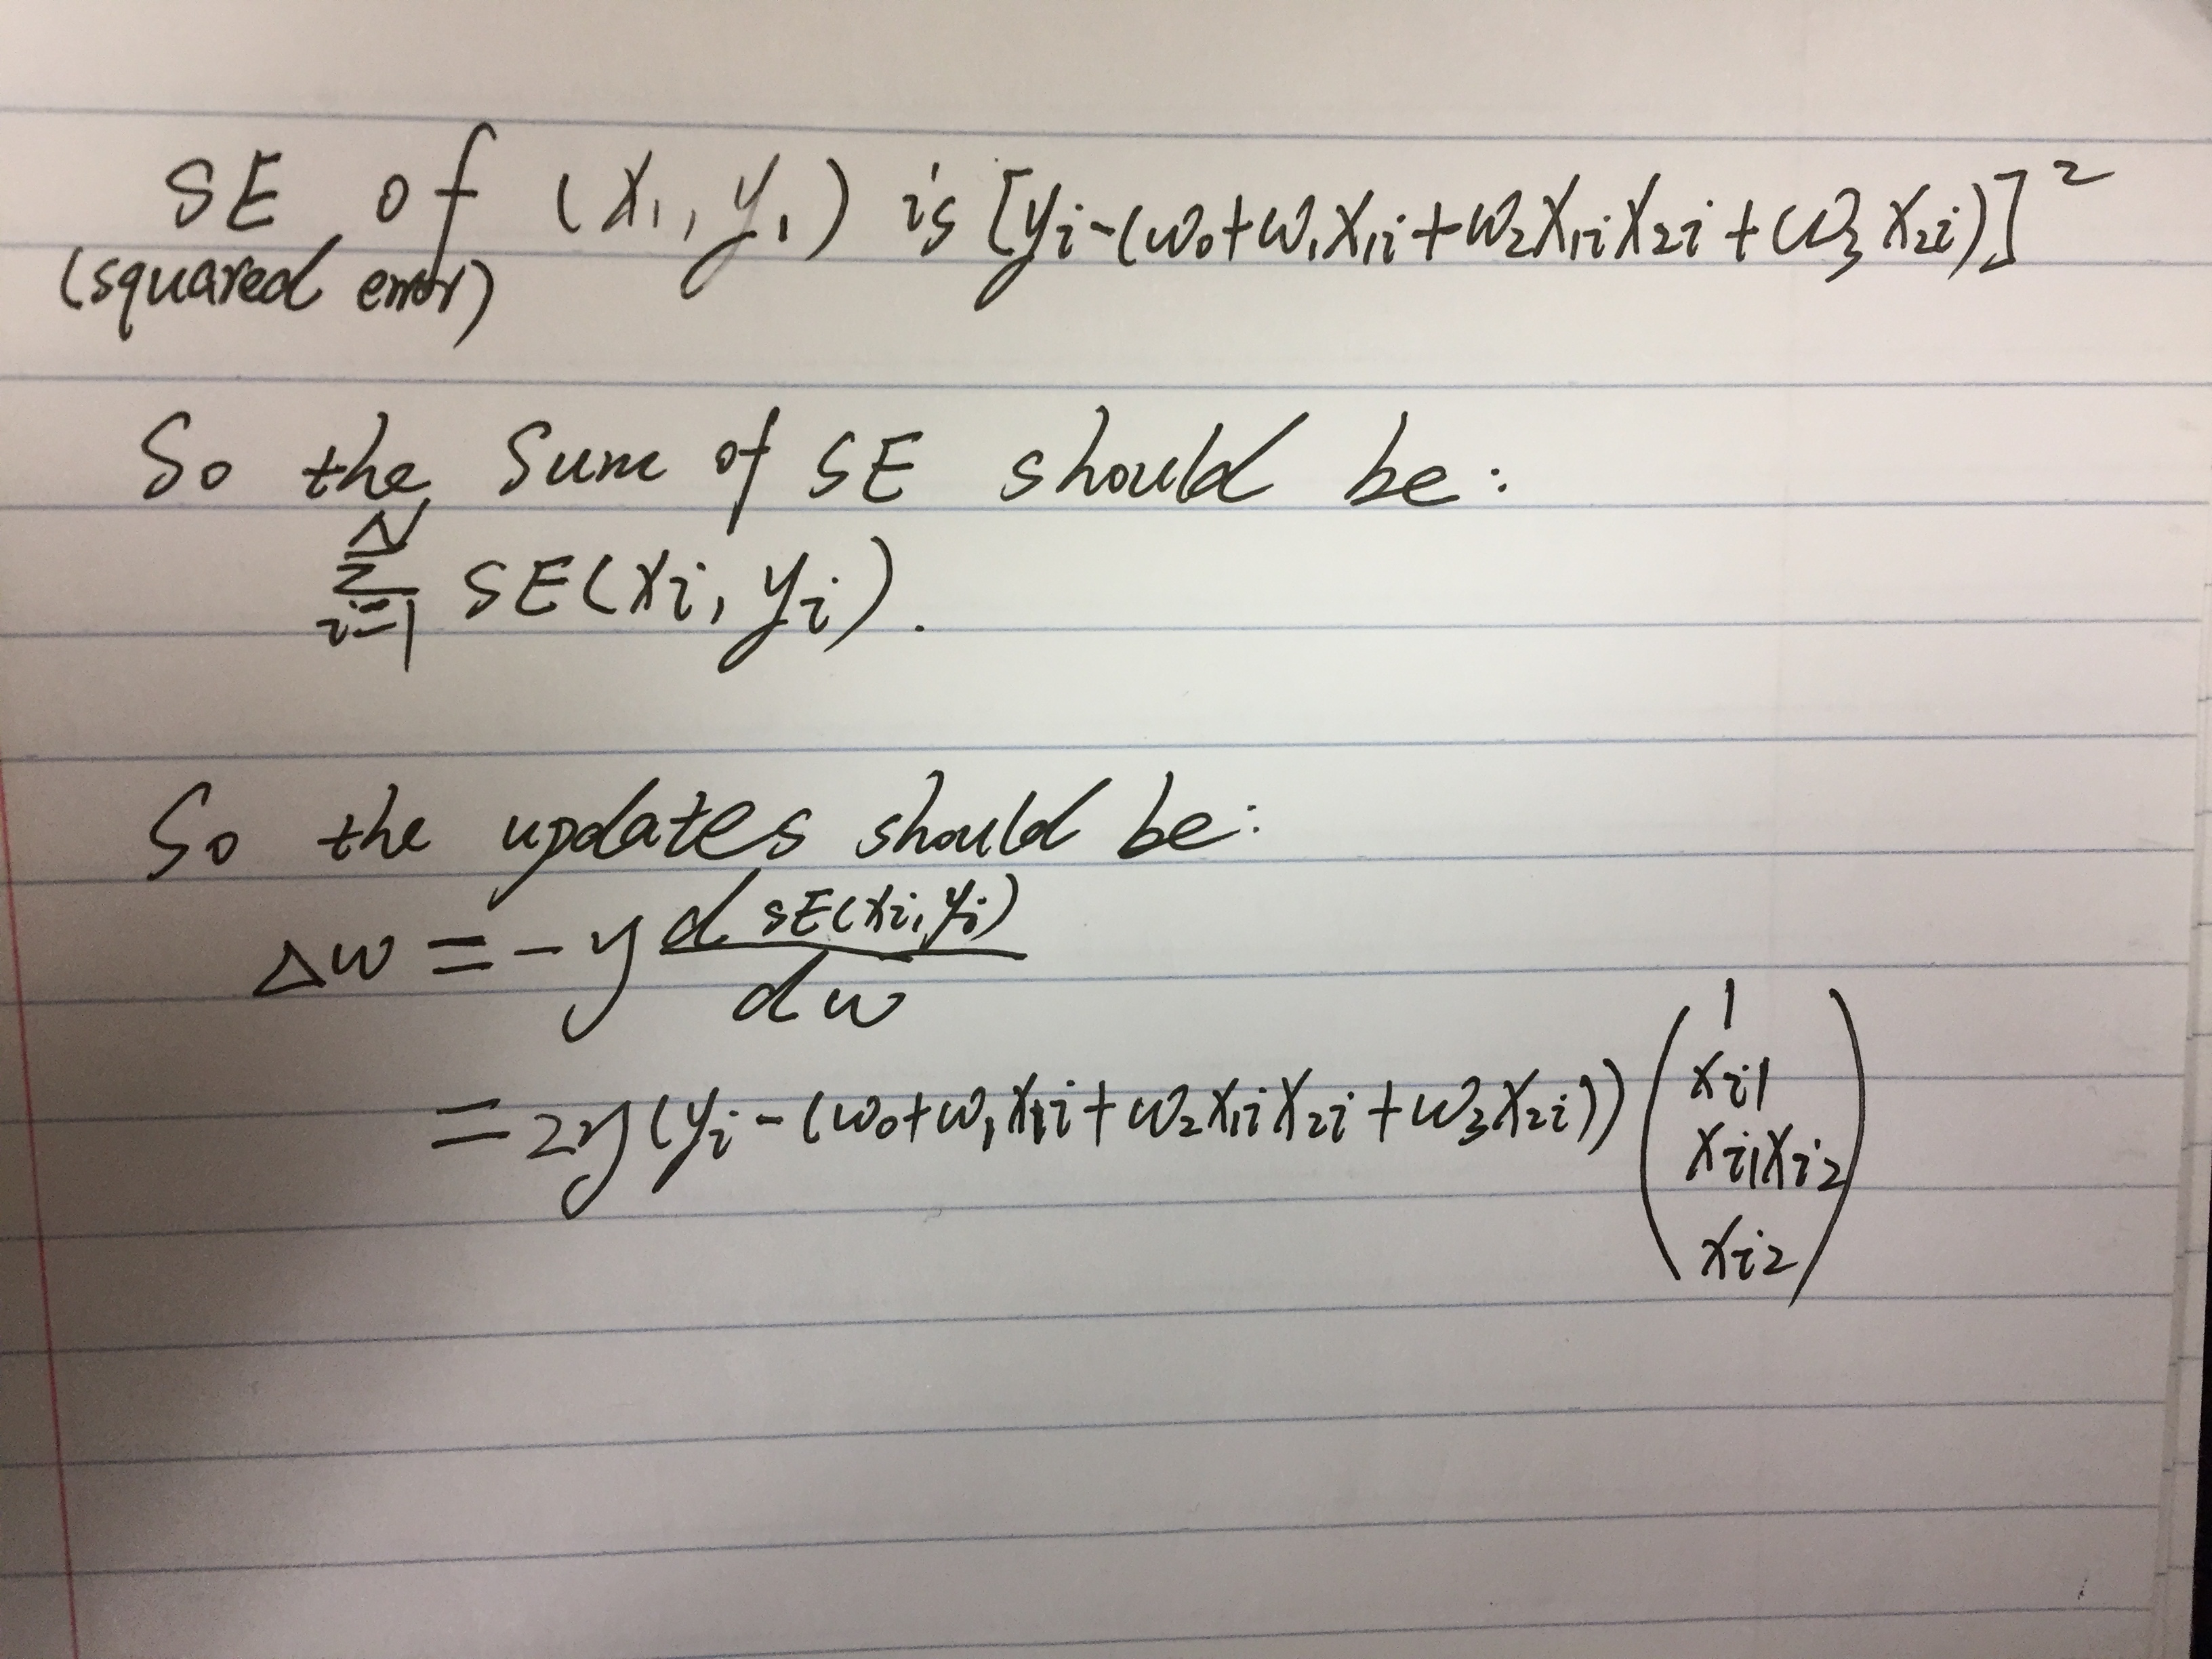 SE of (x₁, y₁) is [yᵢ-(w₀+w₁x₁ᵢ+w₂x₁ᵢx₂ᵢ+w₃x₂ᵢ)]²
(squared error)
So the sum of SE should be:
N
Σ SE(xᵢ, yᵢ).
i=1
So the updates should be:
d SE(xᵢ, yᵢ)
Δw = -y
dw
= 2y(yᵢ-(w₀+w₁x₁ᵢ+w₂x₁ᵢx₂ᵢ+w₃x₂ᵢ))
1
xᵢ₁
xᵢ₁xᵢ₂
xᵢ₂